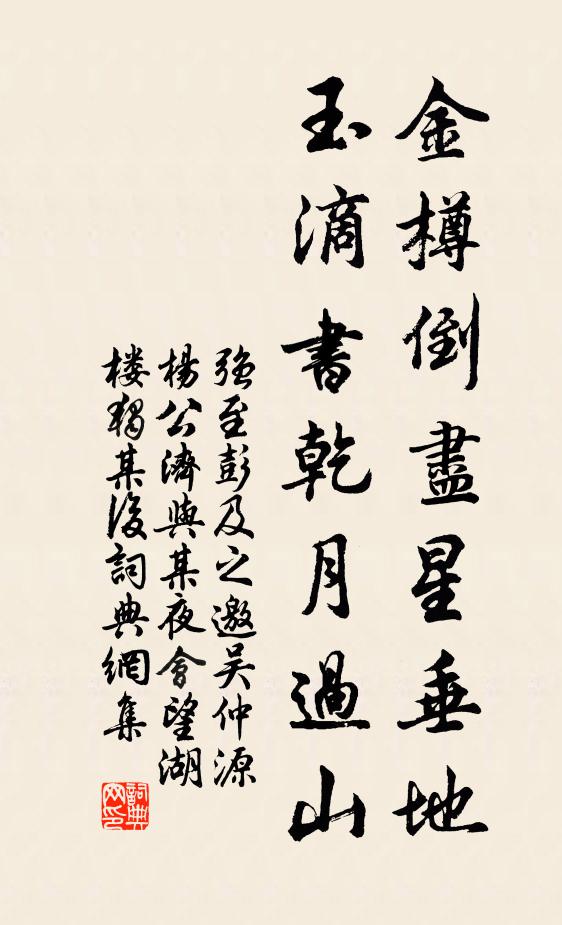 金樽倒盡星垂地
玉滴書乾月過山
强至彭及之邀吴仲源
楊公濟與某夜會望湖
楼獨某後詞典網集
詞典网印